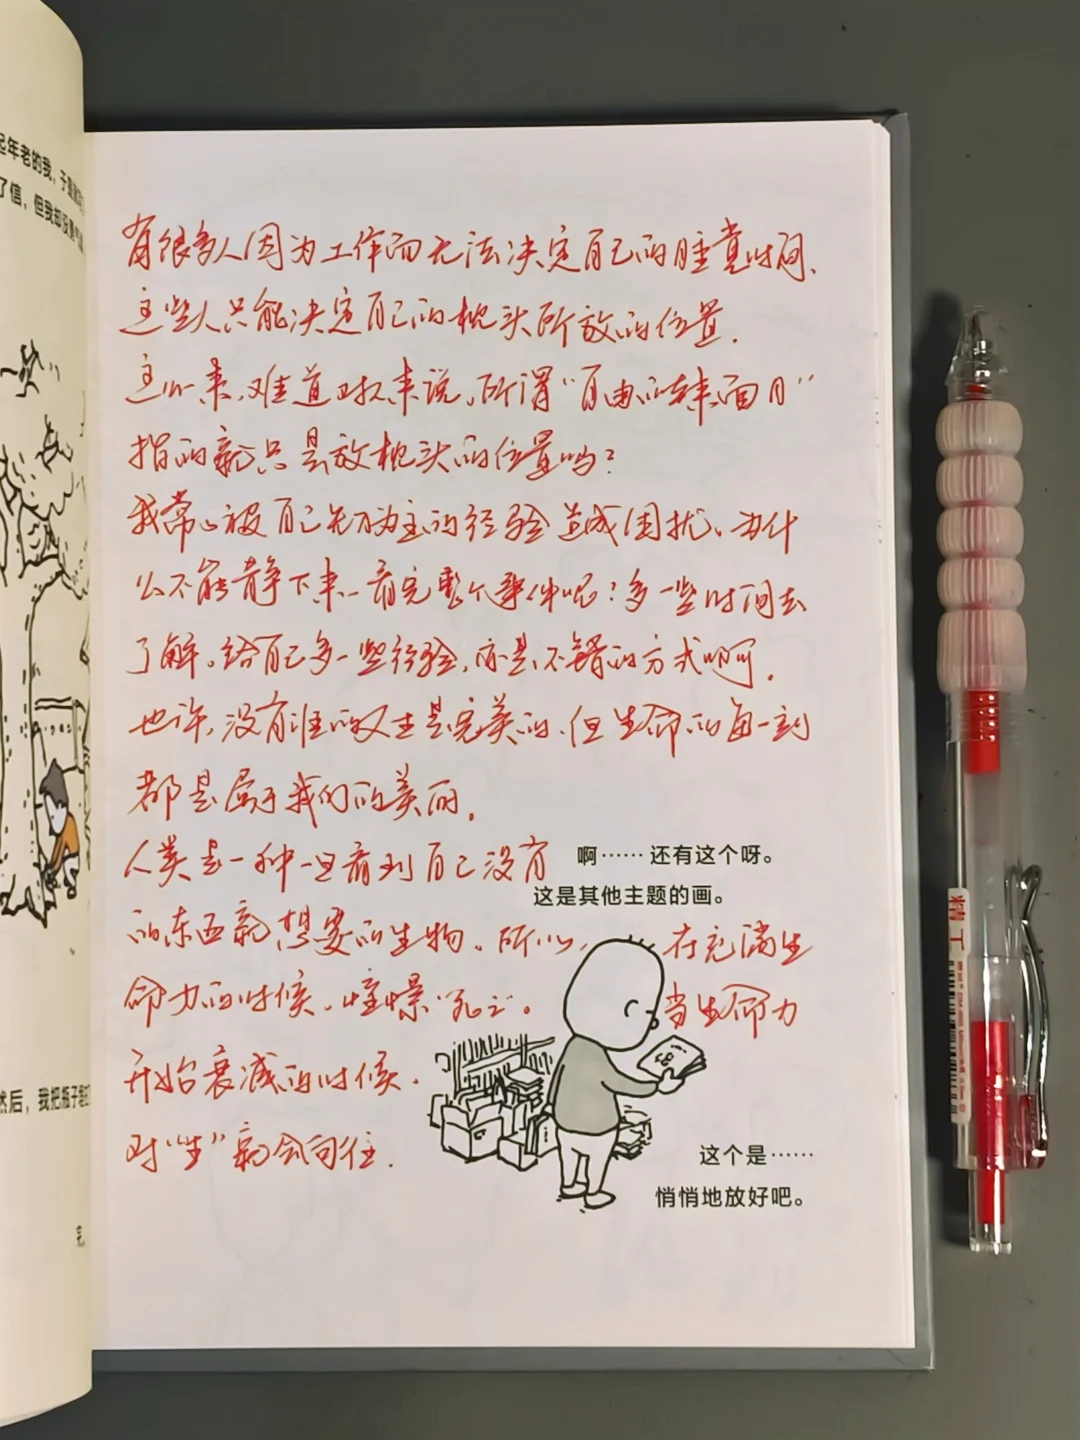 起年老的我，于是
了信，但我却没勇气
有很多人因为工作而无法决定自己的睡觉时间、
这些人只能决定自己的枕头所放的位置.
这么一来,难道对人来说,所谓“自由的本来面目”
指的就只是放枕头的位置吗?
我常常被自己先入为主的经验造成困扰、为什
么不能静下来一看完整个事件呢?多一些时间去
了解,给自己多一些经验,亦是不错的方式啊.
也许,没有谁的人生是完美的,但生命的每一刻
都是属于我们的美丽.
人类是一种一旦看到自己没有
的东西就想要的生物.所以,在充满生
命力的时候.憧憬“死亡”.当生命力
开始衰减的时候.
对“生”就会向往.
啊……还有这个呀。
这是其他主题的画。
这个是……
悄悄地放好吧。
然后，我把瓶子埋
完。
精工